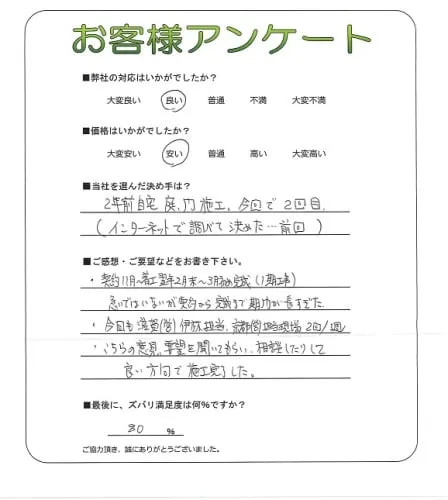 お客様アンケート
■弊社の対応はいかがでしたか？
大変良い 良い 普通 不満 大変不満
■価格はいかがでしたか？
大変安い 安い 普通 高い 大変高い
■当社を選んだ決め手は？
2年前自宅 庭、門 施工、今回で2回目、
(インターネットで調べて決めた…前回)
■ご感想・ご要望などをお書き下さい。
・契約11月～着工翌年2月末～3月初め完成(1期工事)
急いではいないが契約から完成まで期間が長すぎた。
・今回も滋賀(営)伊藤担当、京都営 現場 2回/週
・こちらの意見、要望を聞いてもらい、相談したりして
良い方向で施工完了した。
■最後に、ズバリ満足度は何%ですか？
80 %
ご協力頂き、誠にありがとうございました。